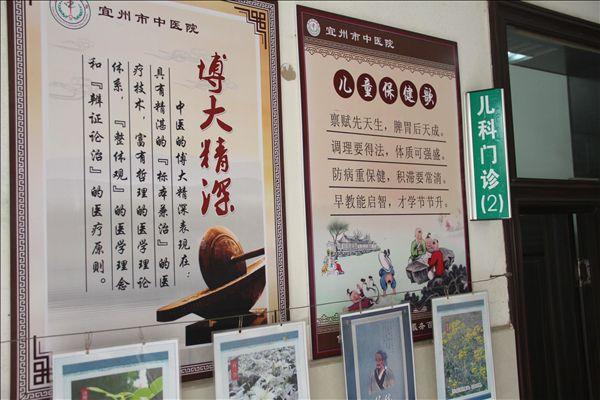 宜州市中医院
博大精深
中医的博大精深表现在：
具有精湛的『标本兼治』的医
疗技术，富有哲理的医学理论
体系，『整体观』的医学理念
和『辩证论治』的医疗原则。
宜州市中医院
儿童保健歌
禀赋先天生，脾胃后天成。
调理要得法，体质可强盛。
防病重保健，积滞要常消。
早教能启智，才学节节升。
儿科门诊
(2)
服务百